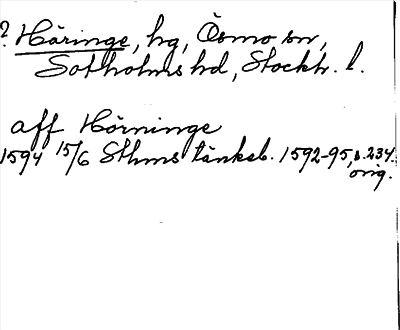 ? Häringe, hg, Ösmo sn,
Sotholms hd, Stockh. l.
aff Hörninge
1594 15/6 Sthms tänkeb. 1592-95, s. 234.
orig.